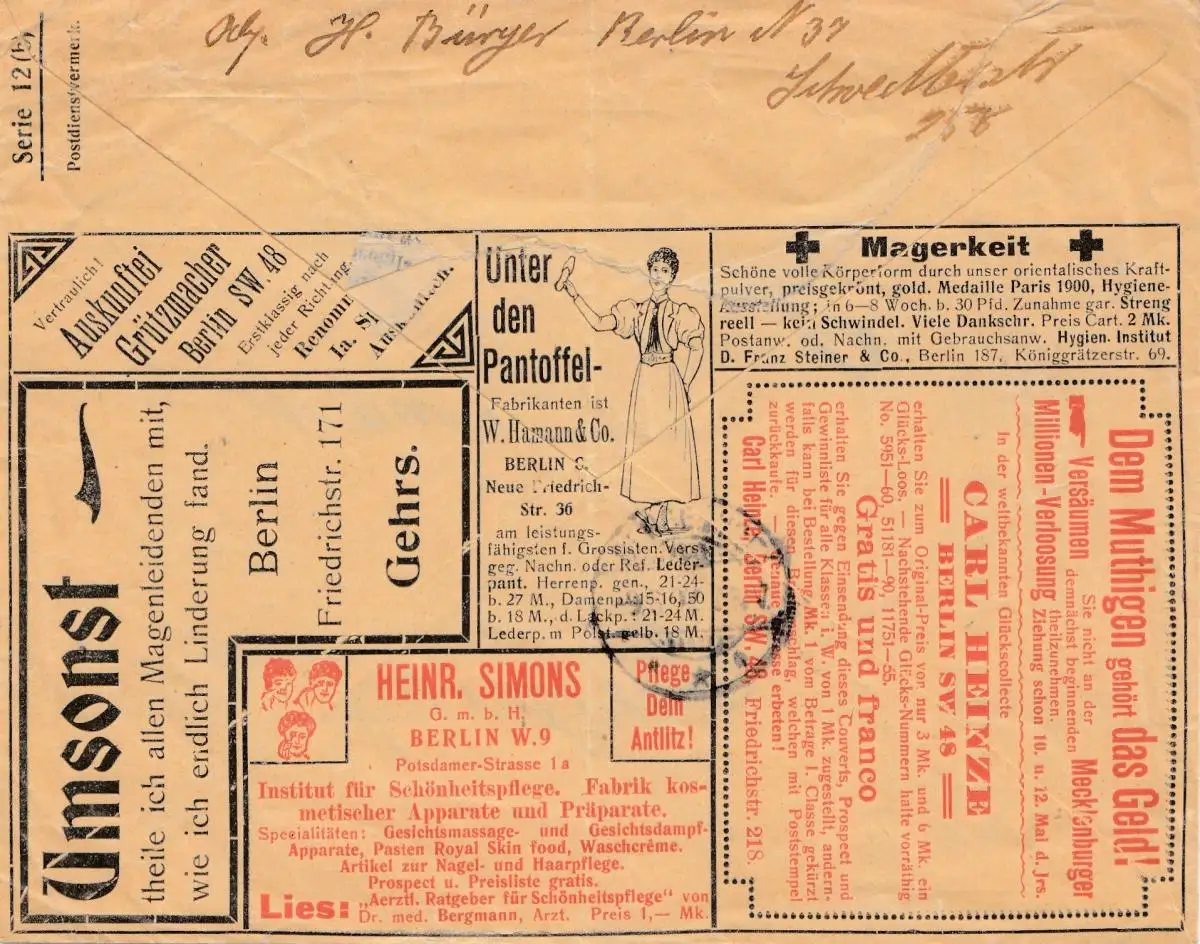 H. Bürger Berlin N 37
Serie 12 (b)
Postdienstvermerk.
Vertraulich!
Auskunftei
Grützmacher
Berlin SW. 48
Erstklassig nach
jeder Richtung.
Renomm
Ia.
Unter
den
Pantoffel-
Fabrikanten ist
W. Hamann & Co.
BERLIN
Neue Friedrich-
Str. 36
am leistungs-
fähigsten f. Grossisten. Vers.
geg. Nachn. oder Ref. Leder-
pant. Herrenp. gen., 21-24-
b. 27 M., Damenp.:15-16,50
b. 18 M., d. Lackp.: 21-24 M.
Lederp. m Polst. gelb. 18 M.
Magerkeit
Schöne volle Körperform durch unser orientalisches Kraft-
pulver, preisgekrönt, gold. Medaille Paris 1900, Hygiene-
Ausstellung; in 6—8 Woch. b. 30 Pfd. Zunahme gar. Streng
reell — kein Schwindel. Viele Dankschr. Preis Cart. 2 Mk.
Postanw. od. Nachn. mit Gebrauchsanw. Hygien. Institut
D. Franz Steiner & Co., Berlin 187, Königgrätzerstr. 69.
Umsonst
theile ich allen Magenleidenden mit,
wie ich endlich Linderung fand.
Berlin
Friedrichstr. 171
Gehrs.
HEINR. SIMONS
G. m. b. H.
BERLIN W. 9
Potsdamer-Strasse 1a
Pflege
Dein
Antlitz!
Institut für Schönheitspflege. Fabrik kos-
metischer Apparate und Präparate.
Specialitäten: Gesichtsmassage- und Gesichtsdampf-
Apparate, Pasten Royal Skin food, Waschcrême.
Artikel zur Nagel- und Haarpflege.
Prospect u. Preisliste gratis.
Lies: „Aerztl. Ratgeber für Schönheitspflege“ von
Dr. med. Bergmann, Arzt. Preis 1,— Mk.
Dem Muthigen gehört das Geld!
Versäumen Sie nicht an der
demnächst beginnenden Mecklenburger
Millionen-Verloosung theilzunehmen.
Ziehung schon 10. u. 12. Mai d. Jrs.
In der weltbekannten Glückscollecte
CARL HEINZE
BERLIN SW. 48
erhalten Sie zum Original-Preis von nur 3 Mk. und 6 Mk. ein
Glücks-Loos. — Nachstehende Glücks-Nummern halte vorräthig
No. 5951—60, 51181—90, 11751—55.
Gratis und franco
erhalten Sie gegen Einsendung dieses Couverts, Prospect und
Gewinnliste für alle Klassen i. W. von 1 Mk. zugestellt, andern-
falls kann bei Bestellung Mk. 1 vom Betrage 1. Classe gekürzt
werden für diesen welchen mit Poststempel
zurückkaufe. — erbeten!
Carl Heinze, Berlin SW. 48 Friedrichstr. 218.